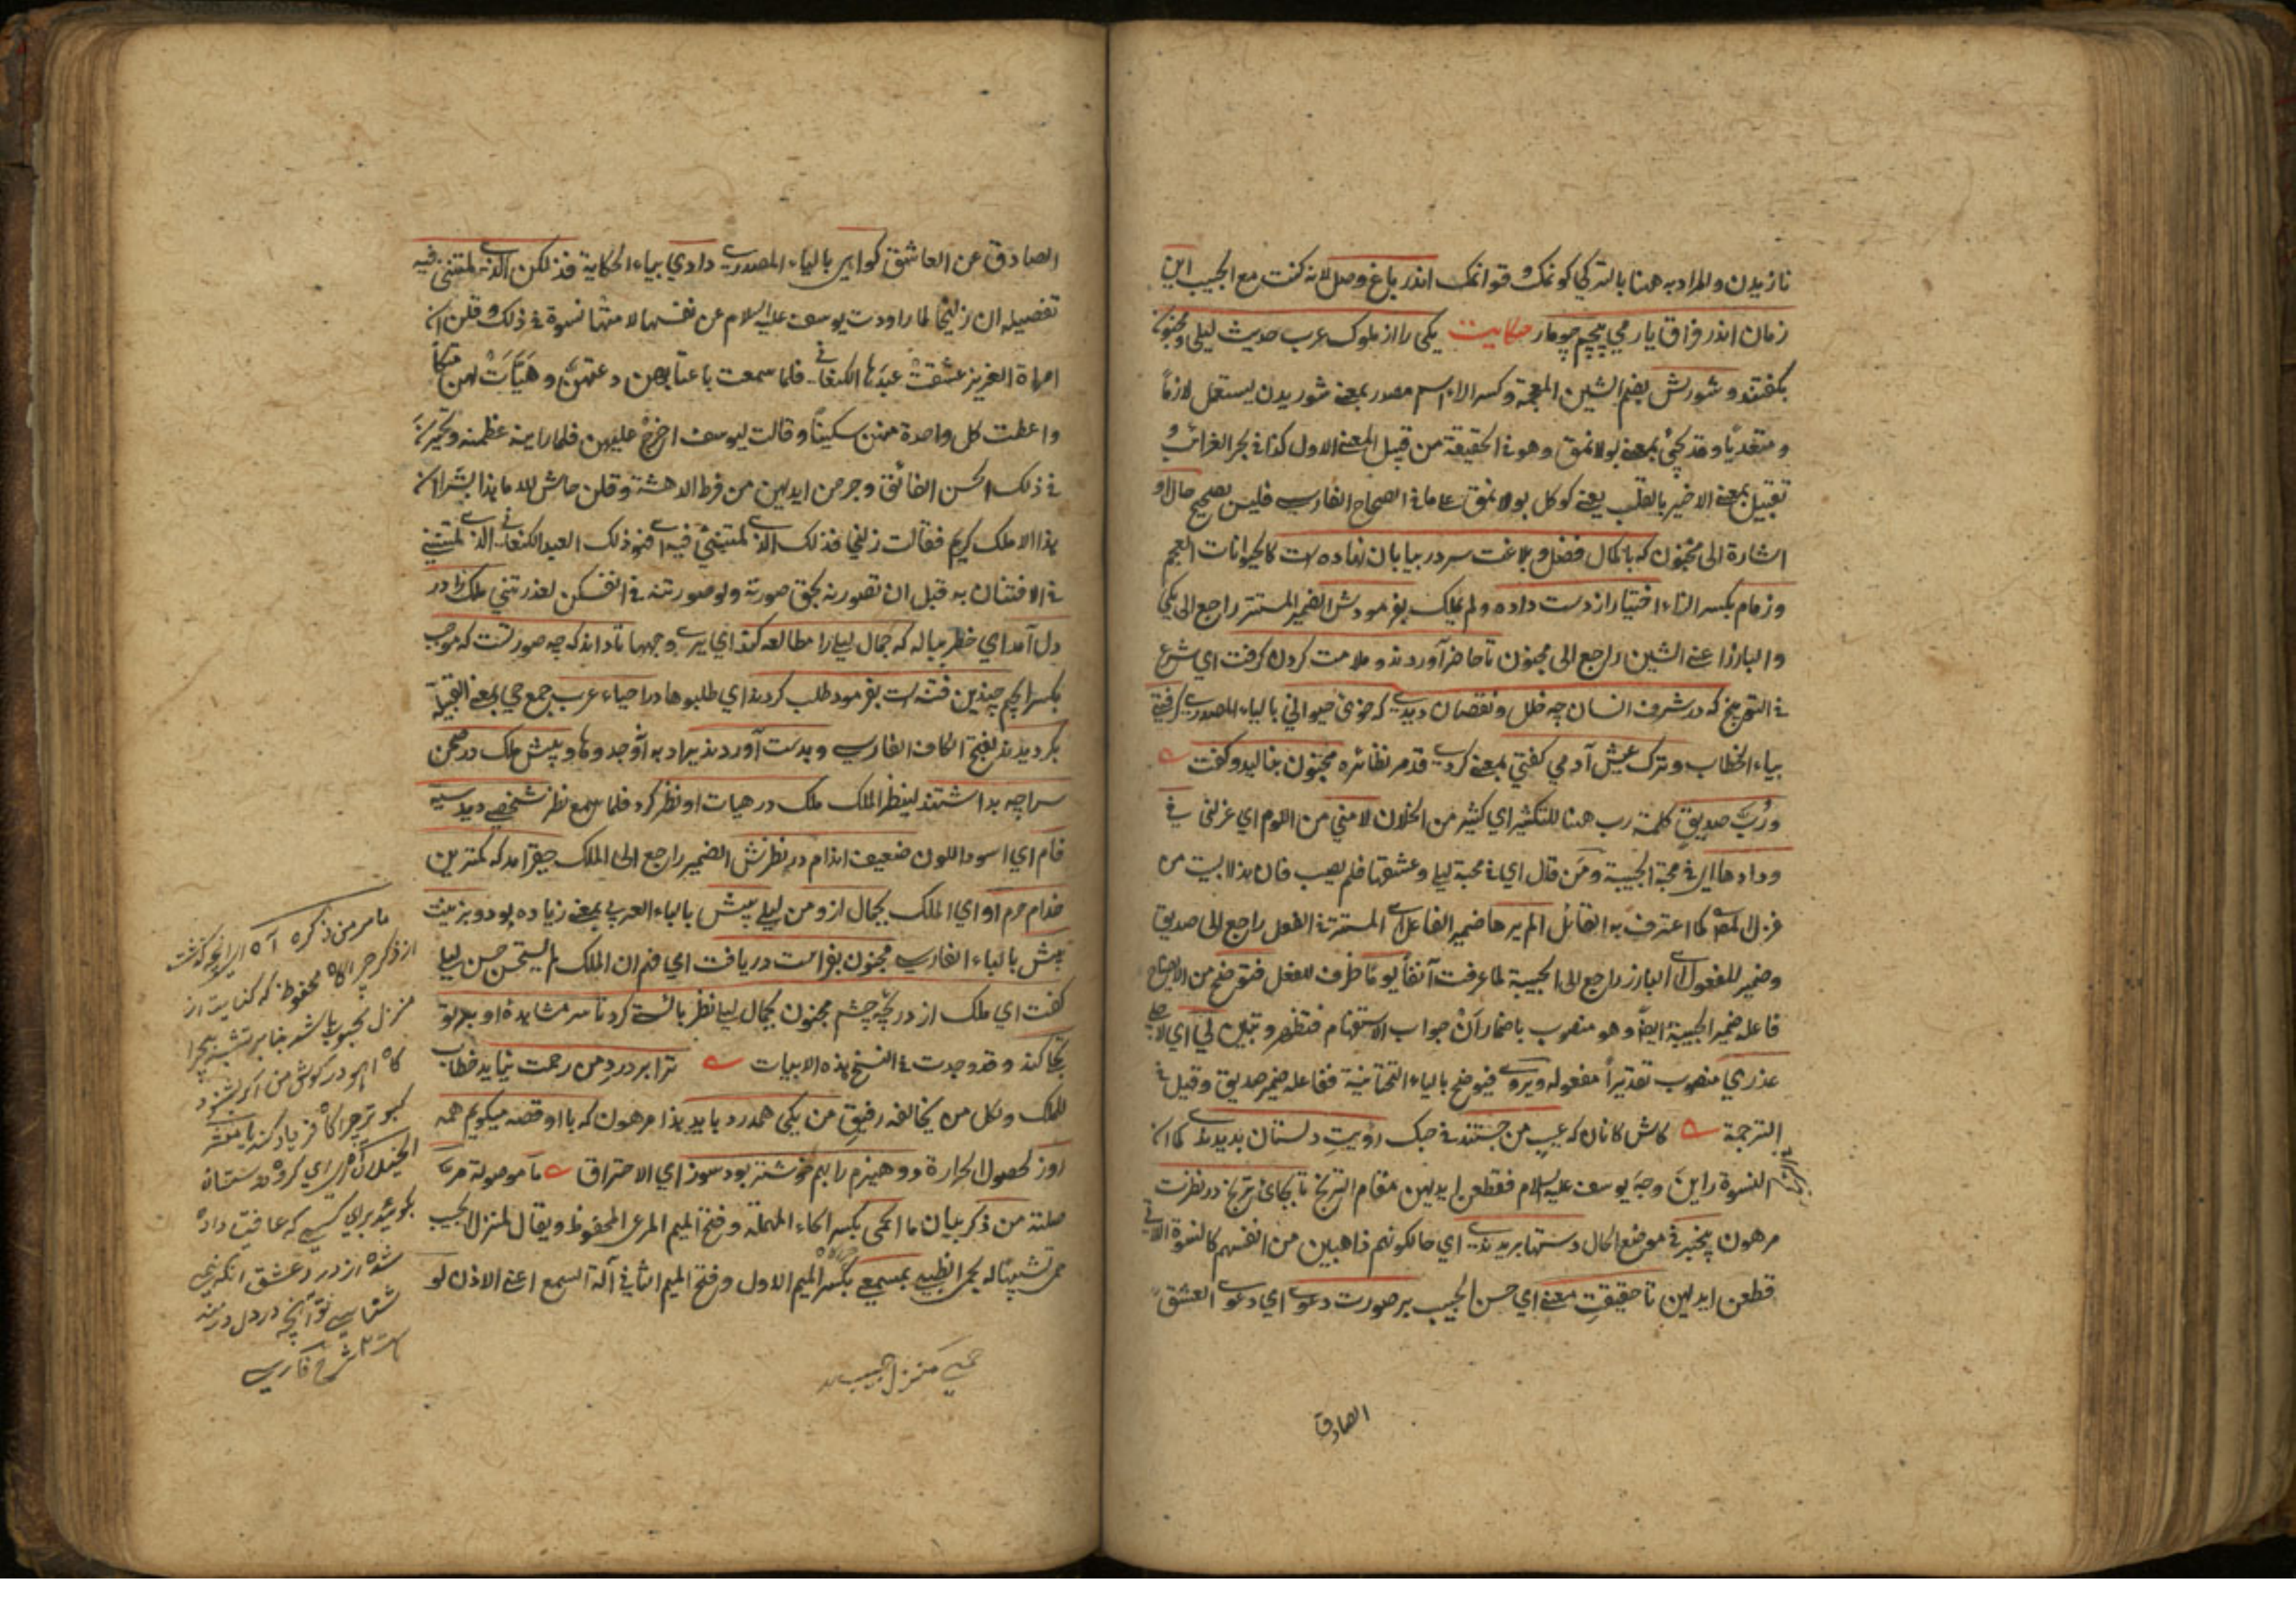 نازیدن والمراد به هنا بالترکی کوکمک وقوانمک اندر باغ وصل لانه کنت مع الحبیب این
زمان اندر فراق یار می پیچم چو مار حکایت یکی را از ملوک عرب حدیث لیلی ومجنون
بکفتند وشورش بضم الشین المعجمة وکسر الراء اسم مصدر بمعنی شوریدن یستعمل لازماً
ومتعدیاً وقد یجئ بمعنی بولانمق وهو فی الحقیقة من قبیل المعنی الاول کذا فی بحر الغرائب و
تقبیل بمعنی الاخیر بالقلب یعنی کوکل بولانمق علی ما فی الصحاح الفارسی فلیس بصحیح حال او
اشارة الی مجنون که با کمال فضل وبلاغت سر در بیابان نهاده است کالحیوانات العجم
وزمام بکسر الزاء اختیار از دست داده ولم یملک بفرمودش الضمیر المستتر راجع الی یکی
والبارز اعنی الشین راجع الی مجنون تا حاضر آوردند وملامت کردن کرفت ای شرع
فی التوبیخ که در شرف انسان چه خلل ونقصان دیدی که خوی حیوانی بالیاء المصدری کرفتی
بیاء الخطاب وترک عیش آدمی کفتی بمعنی کردی قد مر نظائره مجنون بنالید وکفت
ورُبَّ صدیقٍ کلمة رب هنا للتکثیر ای کثیر من الخلان لامنی من اللوم ای عزلنی فی
ودادها ای فی محبة الحبیبة ومَن قال ای فی محبة لیلی وعشقها فلم یصب فان هذا البیت من
غزل المص کما اعترف به القائل الم یرها ضمیر الفاعل ای المستتر فی الفعل راجع الی صدیق
وضمیر المفعول ای البارز راجع الی الحبیبة لما عرفت آنفاً یوماً ظرف للفعل فتوضح من الایضاح
فاعله ضمیر الحبیبة ایضاً وهو منصوب باضمار اَنْ جواب الاستفهام فتظهر وتبین لی ای لاجلی
عذری منصوب تقدیراً مفعوله ویروی فیوضح بالیاء التحتانیة ففاعله ضمیر صدیق وقیل فی
الترجمة کاش کانان که عیب من جستند فی حبک رویتِ دلستان بدیدندی کما ان
النسوة راین وجهَ یوسف علیه السلام فقطعن ایدیهن مقام الترنج تا بجای ترنج در نظرت
مرهون بیخبر فی موضع الحال دستها بریدندی ای حال کونهم ذاهبین من انفسهم کالنسوة اللاتی
قطعن ایدیهن تا حقیقتِ معنی ای حسن الحبیب بر صورت دعوی ای دعوی العشق
الصادق
الصادق عن العاشق کواهی بالیاء المصدری دادی بیاء الحکایة فذلکن الذی لمتننی فیه
تفصیله ان زلیخا لما راودت یوسف علیه السلام عن نفسها لامتها نسوة فی ذلک وقلن ان
امراة العزیز عشقت عبدَها الکنعانی فلما سمعت باعتابهن دعتهنَّ وهَیَّأَتْ لهن متکأً
واعطت کل واحدة منهن سکیناً وقالت لیوسف اخرج علیهن فلما راینه عظمنه وتحیرن
فی ذلک الحسن الفائق وجرحن ایدیهن من فرط الدهشة وقلن حاش لله ما هذا بشرا ان
هذا الا ملک کریم فقالت زلیخا فذلک الذی لمتننی فیه ای فهو ذلک العبد الکنعانی الذی لمتننی
فی الافتتان به قبل ان تصورنه بحق صورته ولو صورتنه فی انفسکن لعذرتننی ملک را در
دل آمد ای خطر بباله که جمال لیلی را مطالعه کند ای یری وجهها تا داند که چه صورتست که موجب
بکسر الجیم چندین فتنه است بفرمود طلب کردند ای طلبوها در احیاء عرب جمع حی بمعنی القبیلة
بکردیدند بفتح الکاف الفارسی وبدست آوردند یراد به اَوْجدوها وپیش ملک در صحن
سراچه بداشتند لینظر الملک ملک در هیات او نظر کرد فلما امعن نظر شخصی دید سیه
فام ای اسود اللون ضعیف اندام در نظرش الضمیر راجع الی الملک حقیر آمد که کمترین
خدام حرم او ای الملک بجمال ازو من لیلی بیش بالباء العربی بمعنی زیاده بود وبزینت
پیش بالباء الفارسی مجنون بفراست دریافت ای فهم ان الملک لم یستحسن حسن لیلی
کفت ای ملک از دریچه چشم مجنون بجمال لیلی نظر بایست کرد تا سر مشاهده او بر تو
تجلی کند وقد وجدت فی النسخ هذه الابیات ترا بر درد من رحمت نیاید خطاب
للملک ولکل من یخالفه رفیقِ من یکی همدرد باید هذا مرهون که با او قصه میکویم همه
روز لحصول الحرارة دو هیزم را بهم خوشتر بود سوز ای الاحتراق ما موصولة مر
صلته من ذکر بیان ما الحمی بکسر الحاء المهملة وفتح المیم المرعی المحفوظ ویقال لمنزل الحبیب
حمی تشبیهًا له بحمی الظبی بمسمعی بکسر المیم الاول وفتح المیم الثانی آلة السمع اعنی الاذن لو
حمی منزل حبیب
ما مر من ذکره آه ای انچه کذشت
از ذکر چراکاه محفوظ که کنایت از
منزل محبوب باشد بنابر تشبیه بچرا
کاه اهو در کوش من اکر شنود
کبوتر چراکاه فریاد کند با من
ای کروه دوستان
بکوئید برای کسی که عافیت داده
شده از درد عشق انکه نمی
شناسی تو آنچه در دل دردمند
است شرح فارسی